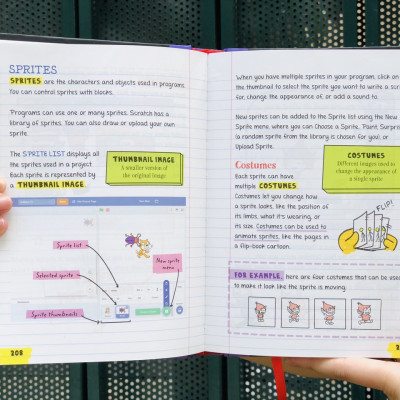 SPRITES
SPRITES are the characters and objects used in programs.
You can control sprites with blocks.
Programs can use one or many sprites. Scratch has a
library of sprites. You can also draw or upload your own
sprite.
The SPRITE LIST displays all
the sprites used in a project.
Each sprite is represented by
a THUMBNAIL IMAGE.
THUMBNAIL IMAGE
A smaller version of
the original image
Sprite list
Selected sprite
New sprite
menu
Sprite thumbnails
208
When you have multiple sprites in your program, click on
the thumbnail to select the sprite you want to write a
for, change the appearance of, or add a sound to.
New sprites can be added to the Sprite list using the New
Sprite menu where you can Choose a Sprite, Paint, Surprise
(a random sprite from the library is chosen for you), or
Upload Sprite.
Costumes
Each sprite can have
multiple COSTUMES.
Costumes let you change how
a sprite looks, like the position of
its limbs, what it's wearing, or
its size. Costumes can be used to
animate sprites, like the pages in
a flip-book cartoon.
COSTUMES
Different images used to
change the appearance of
a single sprite
FLIP!
FOR EXAMPLE, here are four costumes that can be used
to make it look like the sprite is moving.